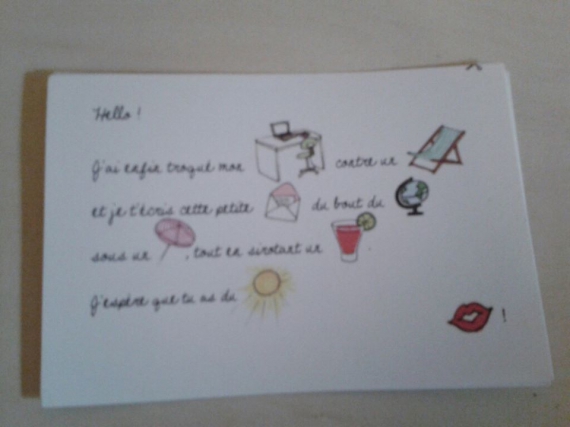 Hello !
J'ai enfin troqué mon contre un
et je t'écris cette petite du bout du
sous un , tout en sirotant un .
J'espère que tu as du
!